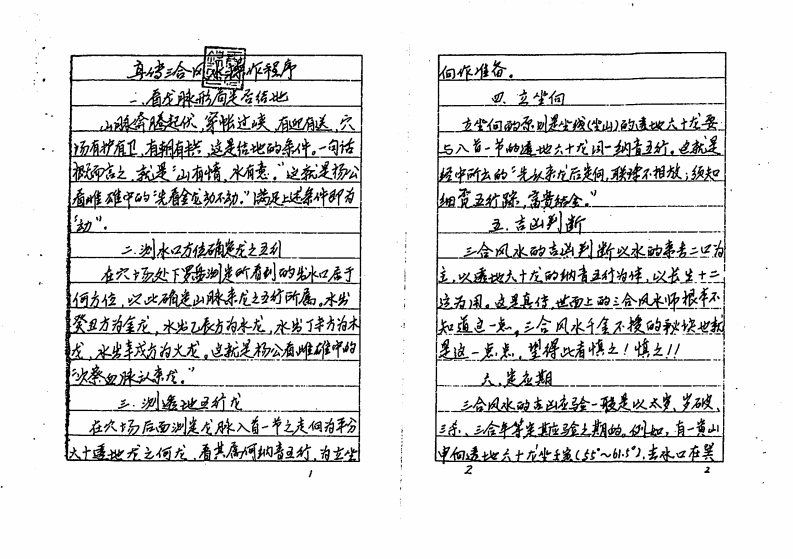 真传三合风水操作程序
一、看龙脉形局是否结地
山脉奔腾起伏，穿帐过峡，有迎有送，穴
场有护有卫，有朝有拱，这是结地的条件。一句话
概而言之，就是“山有情，水有意。”这就是杨公
看雌雄中的“先看金龙动不动。”满足上述条件即为
“动”。
二、测水口方位确定龙之五行
在穴场处下罗盘测定所看到的出水口居于
何方位，以此确定山脉来龙之五行所属。水出
癸丑方为金龙，水出乙辰方为水龙，水出丁未方为木
龙，水出辛戌方为火龙。这就是杨公看雌雄中的
“次察血脉认来龙。”
三、测透地五行龙
在穴场后面测定龙脉入首一节之走向为平分
六十透地龙之何龙，看其属何纳音五行，为立坐
1
向作准备。
四、立坐向
立坐向的原则是坐线(坐山)的透地六十龙要
与入首一节的透地六十龙同一纳音五行。这就是
经中所云的“先从来龙后定向，联珠不相放；须知
细觅五行踪，富贵结全。”
五、吉凶判断
三合风水的吉凶判断以水的来去二口为
主，以透地六十龙的纳音五行为体，以长生十二
运为用。这是真传，世面上的三合风水师根本不
知道这一点。三合风水千金不授的秘诀也就
是这一点点，望得此者慎之！慎之！！
六、定应期
三合风水的吉凶应验一般是以太岁、岁破、
三杀、三合年等定其应验之期的。例如，有一寅山
申向透地六十龙坐壬寅(55°～61.5°)，去水口在巽
2
2